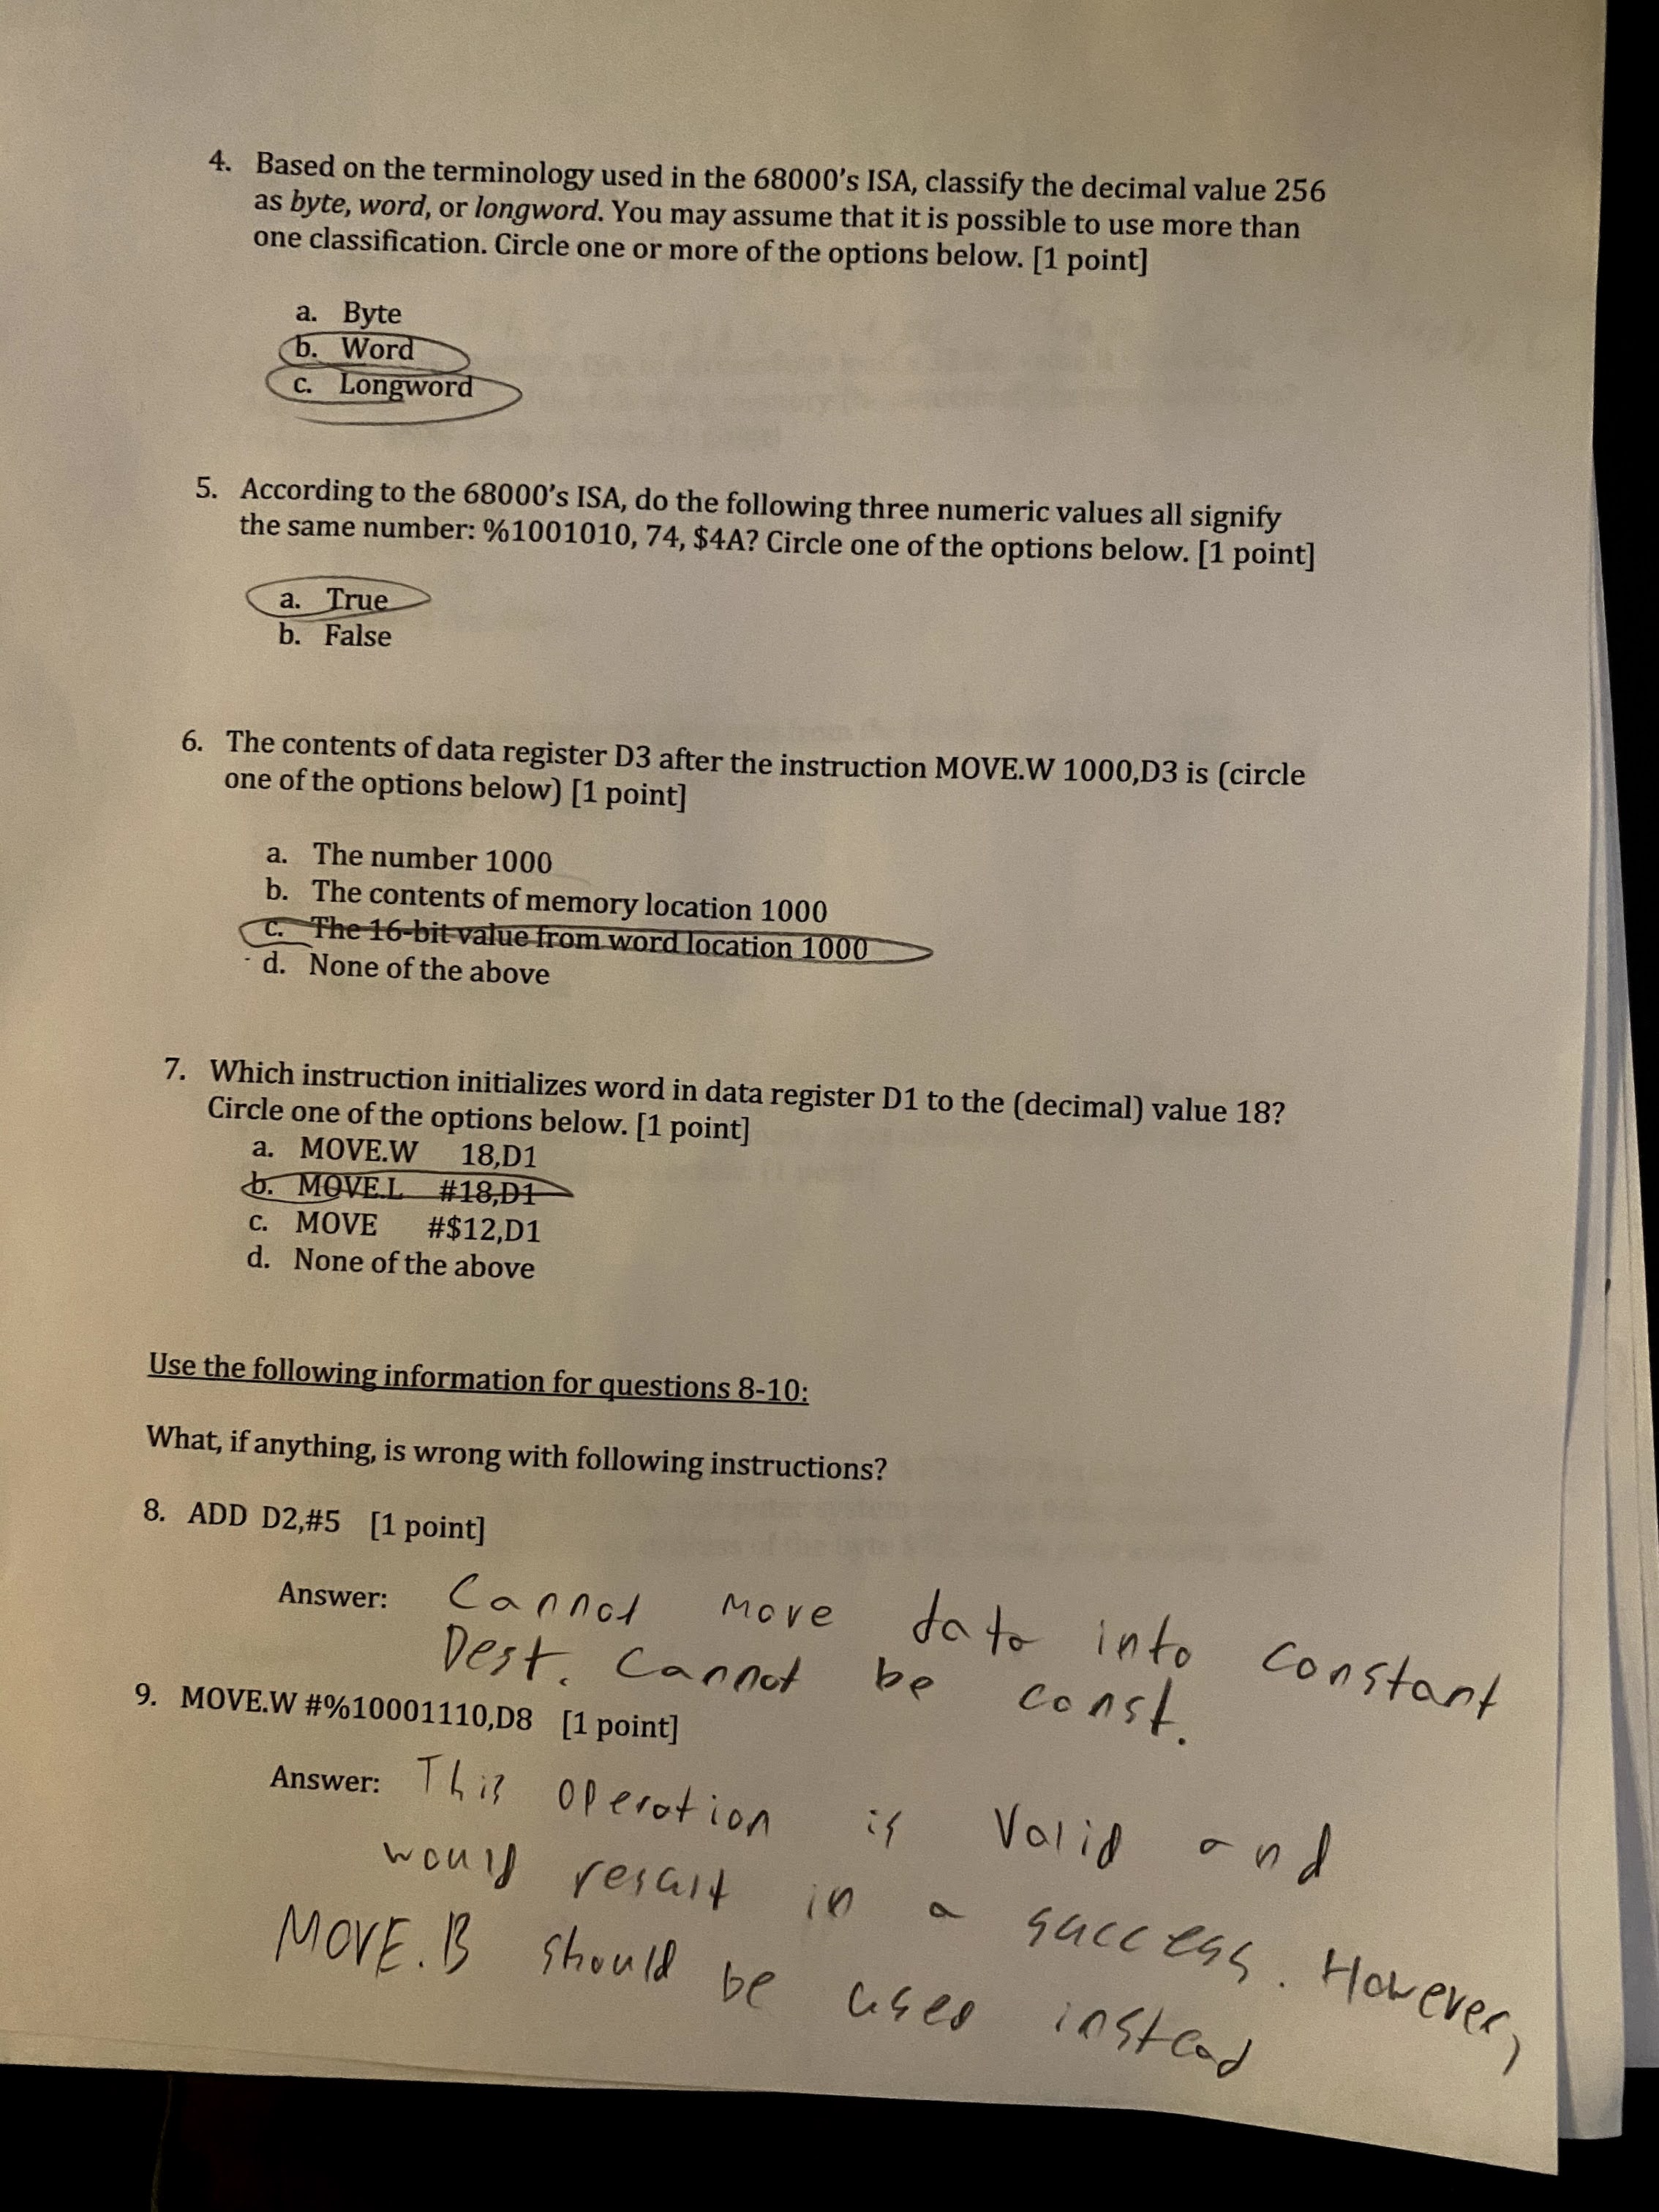 4. Based on the terminology used in the 68000's ISA, classify the decimal value 256
as byte, word, or longword. You may assume that it is possible to use more than
one classification. Circle one or more of the options below. [1 point]
a. Byte
b. Word
c. Longword
5. According to the 68000's ISA, do the following three numeric values all signify
the same number: %1001010, 74, $4A? Circle one of the options below. [1 point]
a. True
b. False
6. The contents of data register D3 after the instruction MOVE.W 1000,D3 is (circle
one of the options below) [1 point]
a. The number 1000
b. The contents of memory location 1000
c. The 16-bit value from word location 1000
d. None of the above
7. Which instruction initializes word in data register D1 to the (decimal) value 18?
Circle one of the options below. [1 point]
a. MOVE.W 18,D1
b. MOVE.L #18,D1
c. MOVE #$12,D1
d. None of the above
Use the following information for questions 8-10:
What, if anything, is wrong with following instructions?
8. ADD D2,#5 [1 point]
Answer: Cannot move data into constant
Dest. Cannot be const.
9. MOVE.W #%10001110,D8 [1 point]
Answer: This operation is valid and
would result in a success. However,
MOVE.B should be used instead